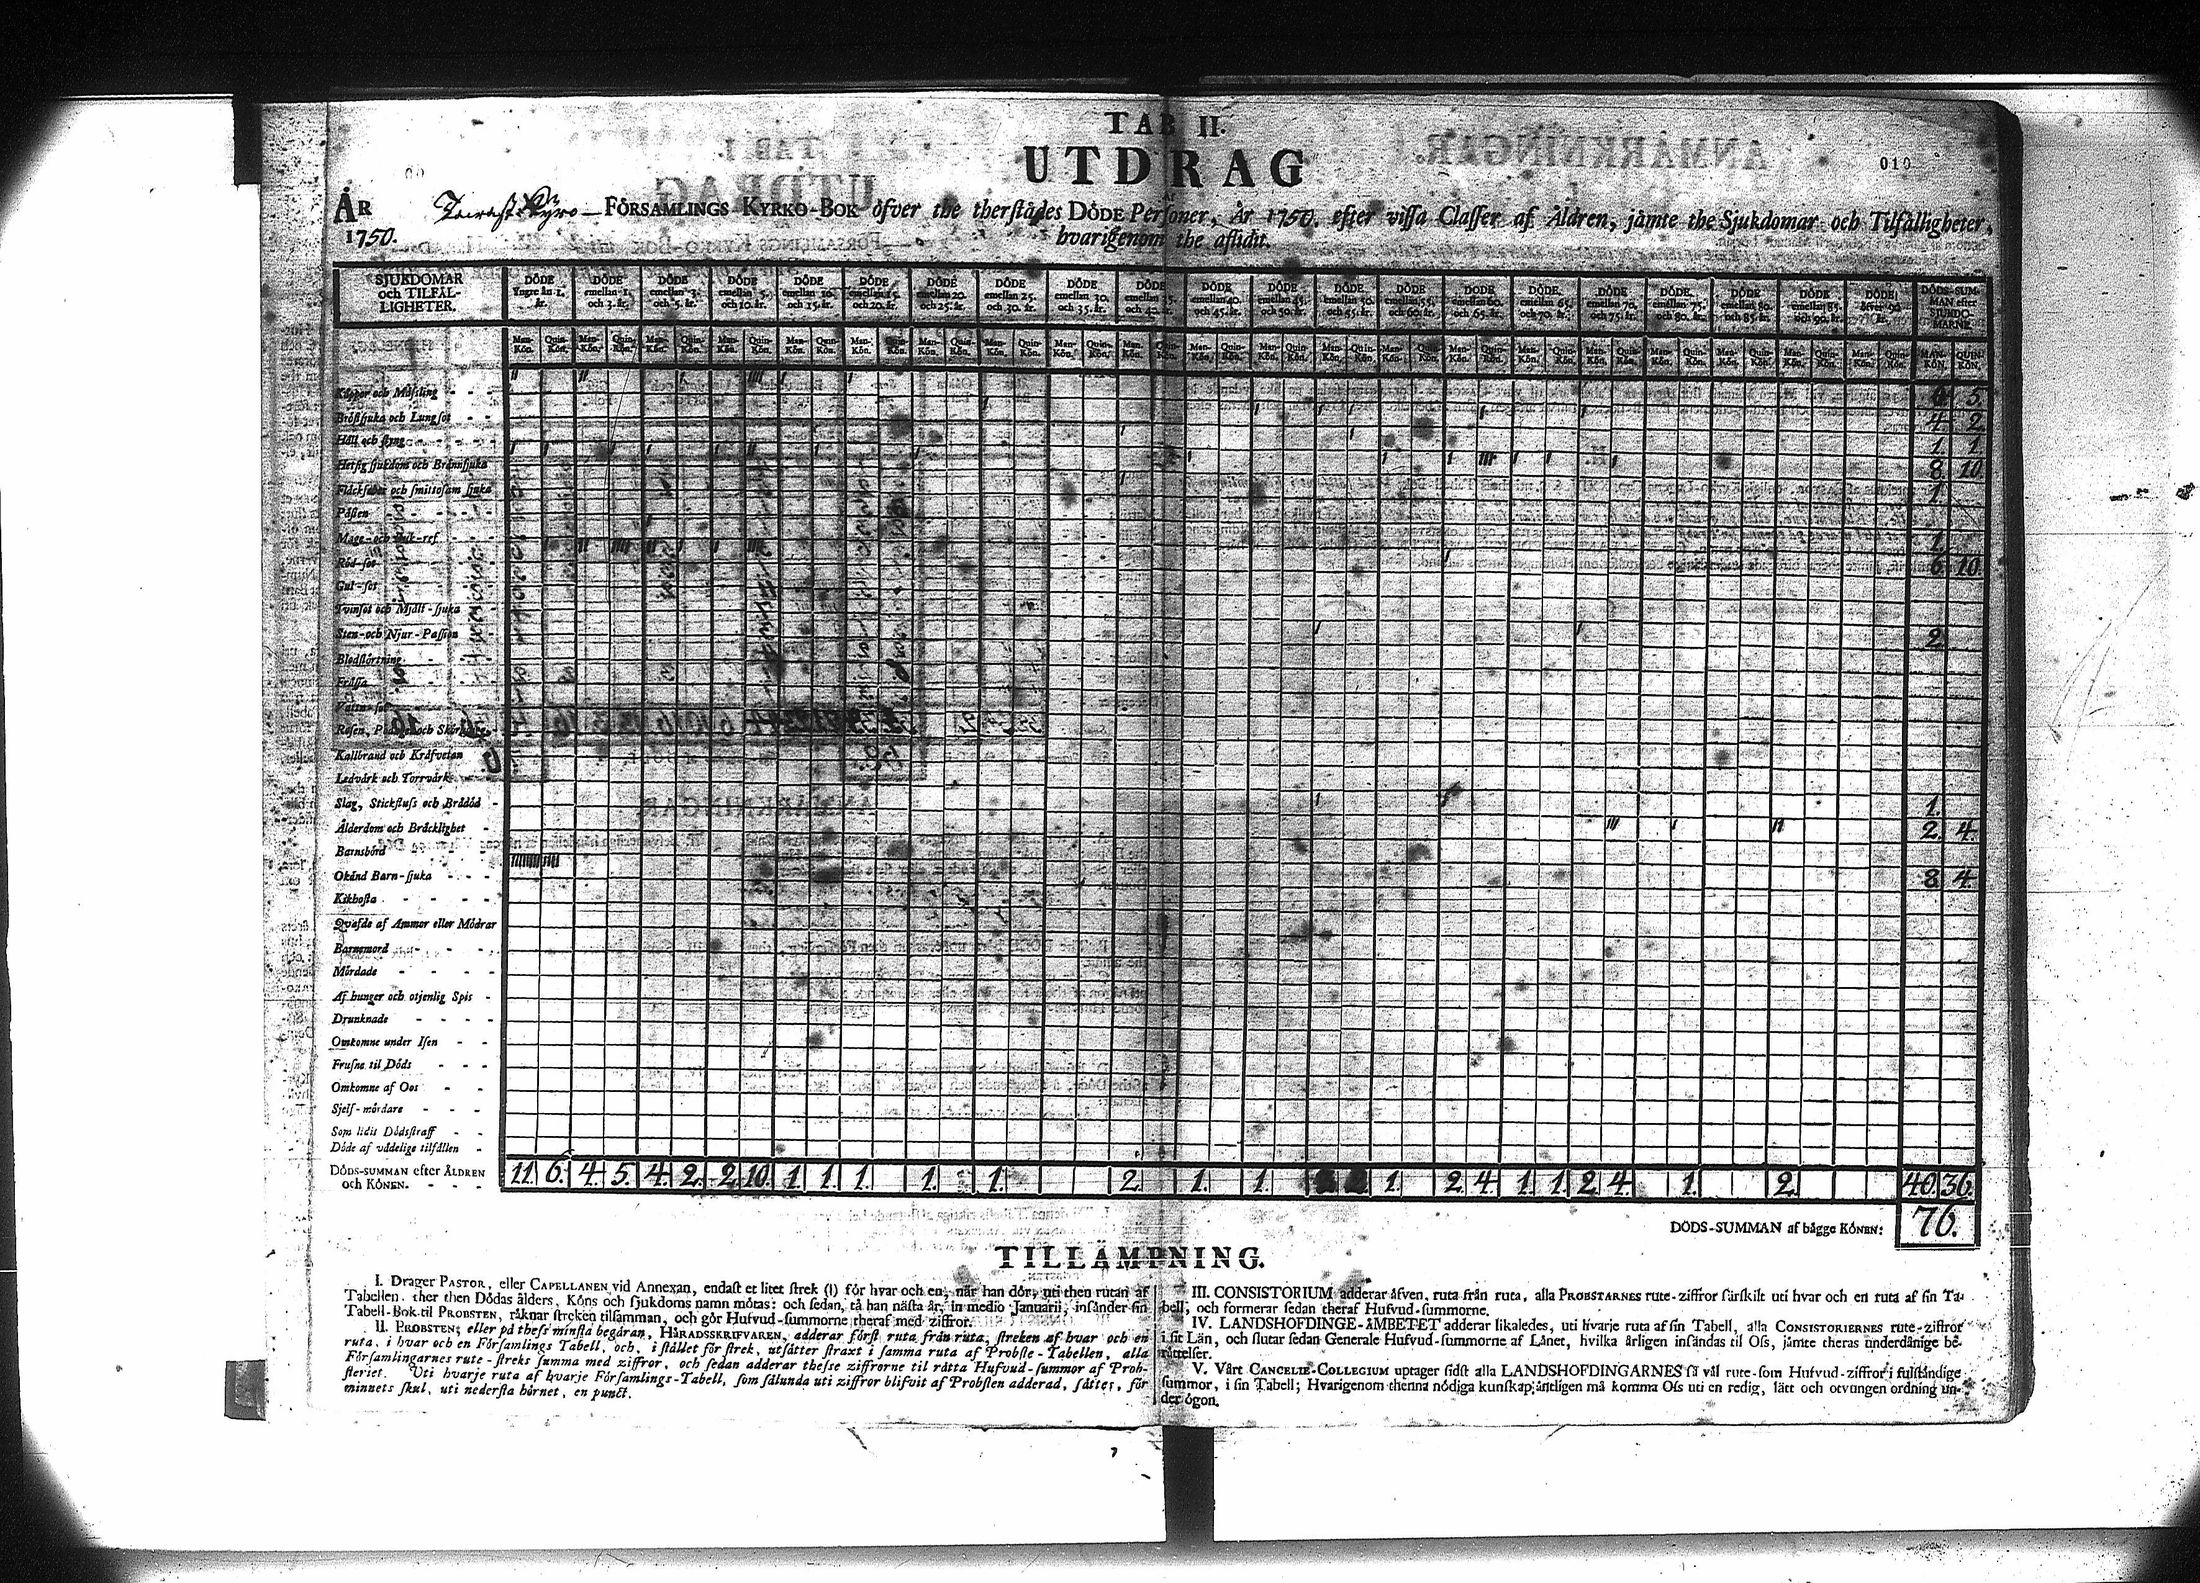 TAB II.
UTDRAG
010
ÅR
1750.
FÖRSAMLINGS KYRKO-BOK öfver the therstädes DÖDE Personer, År 1750. efter vissa Classer af Åldren, jämte the Sjukdomar och Tilfälligheter,
hvarigenom the aflidit.
SJUKDOMAR och TILFÄLLIGHETER.
DÖDE Yngre än 1. år.
DÖDE emellan 1. och 3. år.
DÖDE emellan 3. och 5. år.
DÖDE emellan 5. och 10. år.
DÖDE emellan 10. och 15. år.
DÖDE emellan 15. och 20. år.
DÖDE emellan 20. och 25. år.
DÖDE emellan 25. och 30. år.
DÖDE emellan 30. och 35. år.
DÖDE emellan 35. och 40. år.
DÖDE emellan 40. och 45. år.
DÖDE emellan 45. och 50. år.
DÖDE emellan 50. och 55. år.
DÖDE emellan 55. och 60. år.
DÖDE emellan 60. och 65. år.
DÖDE emellan 65. och 70. år.
DÖDE emellan 70. och 75. år.
DÖDE emellan 75. och 80. år.
DÖDE emellan 80. och 85. år.
DÖDE emellan 85. och 90. år.
DÖDE öfver 90 år.
DÖDS-SUMMAN efter SJUKDOMARNE.
Man-Kön. Quin-Kön.
Koppor och Mäsling 5.
Bröstsjuka och Lungsot 4. 2.
Håll och styng 1. 1.
Hetsig sjukdom och Brännsjuka 8. 10.
Fläckfeber och smittosam sjuka 1.
Påsien
Mage- och Buk-ref 1.
Röd-sot 6. 10.
Gul-sot
Tvinsot och Mjält-sjuka
Sten- och Njur-Passion 2.
Blodstörtning
Frossa
Vattu-sot
Rosen, Podager och Skörbjugg
Kallbrand och Kräfvetan
Ledvärk och Torrvärk
Slag, Stickfluss och Brådöd 1.
Ålderdom och Bräcklighet 2. 4.
Barnsbörd
Okänd Barn-sjuka 8. 4.
Kikhosta
Qvafde af Ammor eller Mödrar
Barnemord
Mördade
Af hunger och otjenlig Spis
Drunknade
Omkomne under Isen
Frusne til Döds
Omkomne af Oos
Sjelf-mördare
Som lidit Dödsstraff
Döde af vådelige tilfällen
DÖDS-SUMMAN efter ÅLDREN och KÖNEN. 11. 6. 4. 5. 4. 2. 2. 10. 1. 1. 1. 1. 1. 2. 1. 1. 1. 2. 4. 1. 1. 2. 4. 1. 2. 40. 36.
DÖDS-SUMMAN af bägge KÖNEN: 76.
TILLÄMPNING.
I. Drager PASTOR, eller CAPELLANEN vid Annexan, endast et litet strek (l) för hvar och en, när han dör, uti then rutan af
Tabellen, ther then Dödas ålders, Köns och sjukdoms namn mötas: och sedan, tå han nästa år, in medio Januarii, insänder sin
Tabell-Bok til PROBSTEN, räknar streken tilsamman, och gör Hufvud-summorne theraf med ziffror.
II. PROBSTEN, eller på thess minsta begäran, HÄRADSSKRIFVAREN, adderar först ruta från ruta, streken af hvar och en
ruta, i hvar och en Församlings Tabell, och, i stället för strek, utsätter straxt i samma ruta af Probste-Tabellen, alla
Församlingarnes rute-streks summa med ziffror, och sedan adderar thesse ziffrorne til rätta Hufvud-summor af Prob-
steriet. Uti hvarje ruta af hvarje Församlings-Tabell, som sålunda uti ziffror blifvit af Probsten adderad, sätter, för
minnets skul, uti nedersta hörnet, en punct.
III. CONSISTORIUM adderar äfven, ruta från ruta, alla PROBSTARNES rute-ziffror särskilt uti hvar och en ruta af sin Ta-
bell, och formerar sedan theraf Hufvud-summorne.
IV. LANDSHOFDINGE-ÄMBETET adderar likaledes, uti hvarje ruta af sin Tabell, alla CONSISTORIERNES rute-ziffror
i sit Län, och slutar sedan Generale Hufvud-summorne af Länet, hvilka årligen insändas til Oss, jämte theras underdånige be-
rättelser.
V. Vårt CANCELIE-COLLEGIUM uptager sidst alla LANDSHOFDINGARNES så väl rute-som Hufvud-ziffror i fulständige
summor, i sin Tabell; Hvarigenom thenna nödiga kunskap änteligen må komma Oss uti en redig, lätt och otvungen ordning un-
der ögon.